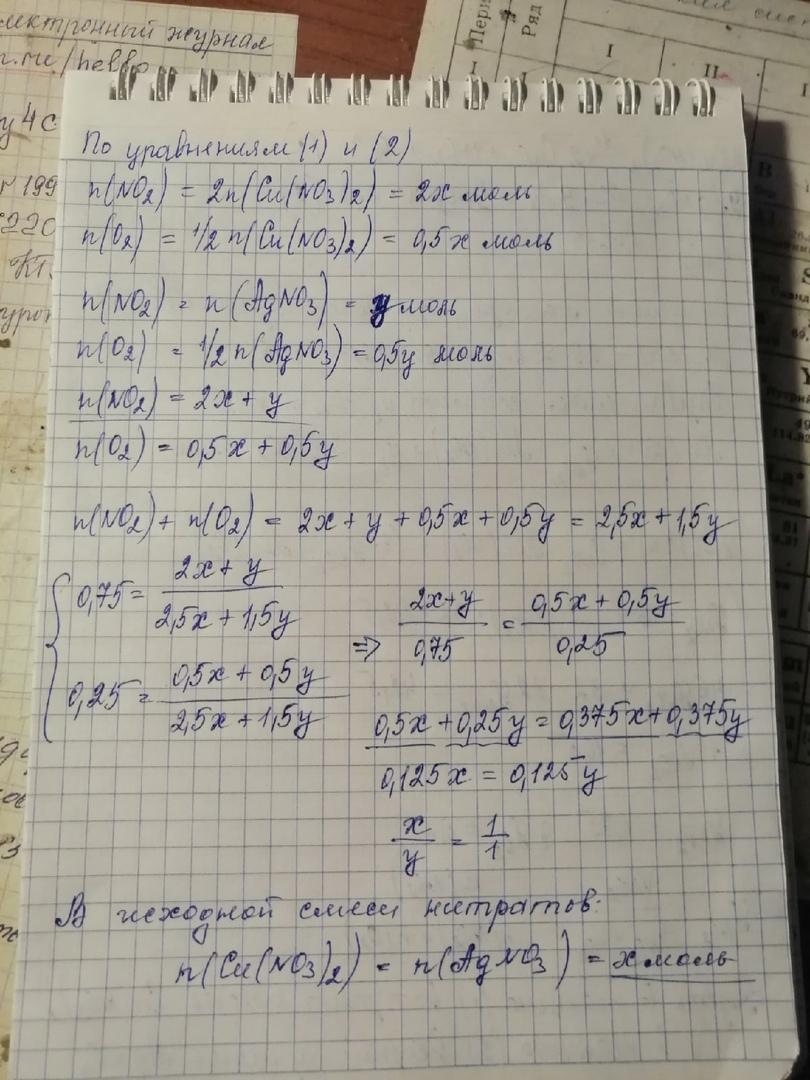 лектронный журнал
Ряд
I
II
I
I
По уравнениям (1) и (2)
n(NO₂) = 2n(Cu(NO₃)₂) = 2x моль
n(O₂) = 1/2 n(Cu(NO₃)₂) = 0,5x моль
n(NO₂) = n(AgNO₃) = y моль
n(O₂) = 1/2 n(AgNO₃) = 0,5y моль
n(NO₂) = 2x + y
n(O₂) = 0,5x + 0,5y
n(NO₂) + n(O₂) = 2x + y + 0,5x + 0,5y = 2,5x + 1,5y
0,75 = (2x + y)/(2,5x + 1,5y)
0,25 = (0,5x + 0,5y)/(2,5x + 1,5y)
⇒ (2x+y)/0,75 = (0,5x + 0,5y)/0,25
0,5x + 0,25y = 0,375x + 0,375y
0,125x = 0,125y
x/y = 1/1
В исходной смеси нитратов:
n(Cu(NO₃)₂) = n(AgNO₃) = x моль